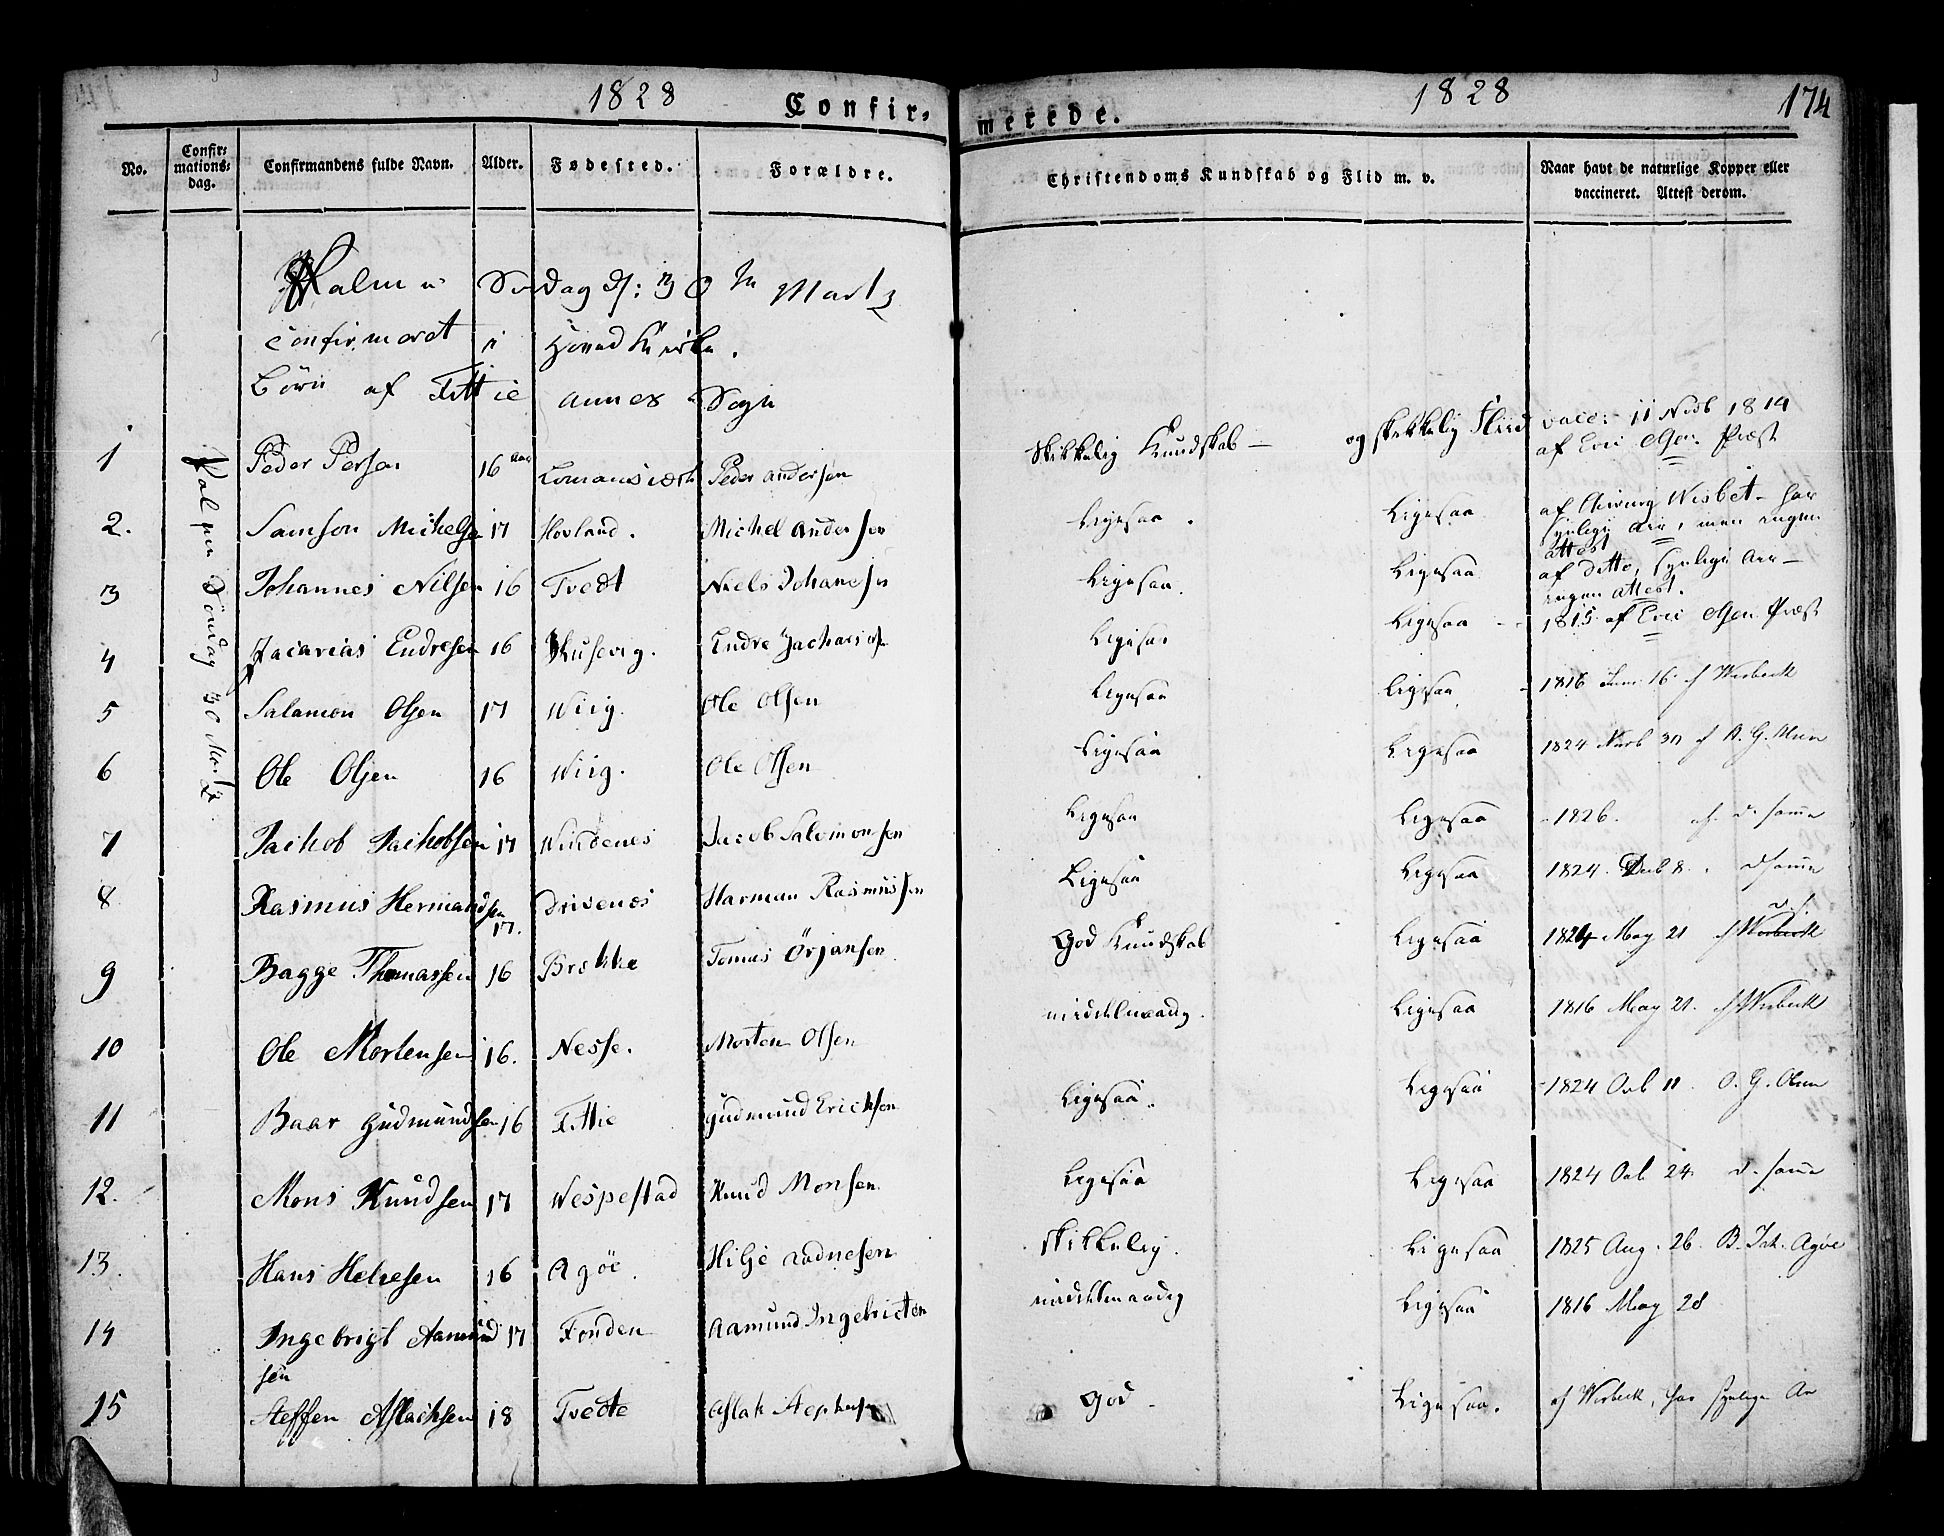 1828 Confir-
merede. 1828 174
No. Confir-mations-dag. Confirmandens fulde Navn. Alder. Fødested. Forældre. Christendoms Kundskab og Flid m. v. Naar havt de naturlige Kopper eller vaccineret. Attest derom.
Palme Søndag d: 30 Martz
confirmeret i Hoved Kirke.
Børn af Fittie annex Sogn
Palme Søndag 30 Martz
1 Peder Person 16 Aar Peder andersen skikkelig Kundskab og skikkelig Fliid vacc: 11 Novb 1814 af Eric Olsen Præst
2. Samson Michelsen 17 Hovland. Michel Andersen Ligesaa. Ligesaa af Chirurg Wisbek har synlige Ar, men ingen Attest
3 Johannes Nilsen 16 Tvedt Niels Johanesen Ligesaa. Ligesaa af ditto, synlige Ar ingen attest.
4 Zacarias Endresen 16 Husevig. Endre Zachariesen Ligesaa Ligesaa 1815 af Eric Olsen Præst
5 Salamon Olsen 17 Wiig. Ole Olsen Ligesaa Ligesaa 1816 16 Wisbeck
6 Ole Olsen 16 Wiig. Ole Olsen Ligesaa Ligesaa 1824 Novb 30
7 Jachob Jachobsen 17 Windenes Jacob Salomonsen Ligesaa Ligesaa 1826. af d. samme
8 Rasmus Hermandsen 17. Drivenes Harman Rasmussen Ligesaa Ligesaa 1824. Decb 8. d samme
9 Bagge Thomassen 16 Brekke Tomas Örjansen God Kundskab Ligesaa 1824 May 21
10 Ole Mortensen 16. Nesse. Morten Olsen middelmaadig. Ligesaa 1816 May 21. Wisbeck
11 Baar Gudmundsen 16 Fittie Gudmund Ericksen Ligesaa. Ligesaa 1824 11 O. G. Olsen
12. Mons Knudsen 17 Wespestad Knud Monsen Ligesaa Ligesaa 1824 24. d. samme
13. Hans Helgesen 16 Agöe Hilge Aadnesen skikkelig. Ligesaa 1825 Aug. 26 B. Jak. Agöe
14 Ingebrigt Aamundsen 17 Fonden Aamund Ingebricten middelmaadig Ligesaa 1816 May 28
15 Steffen Aslachsen 18 Tvedte Aslak God Ligesaa. af Wisbeck, har synlige Ar